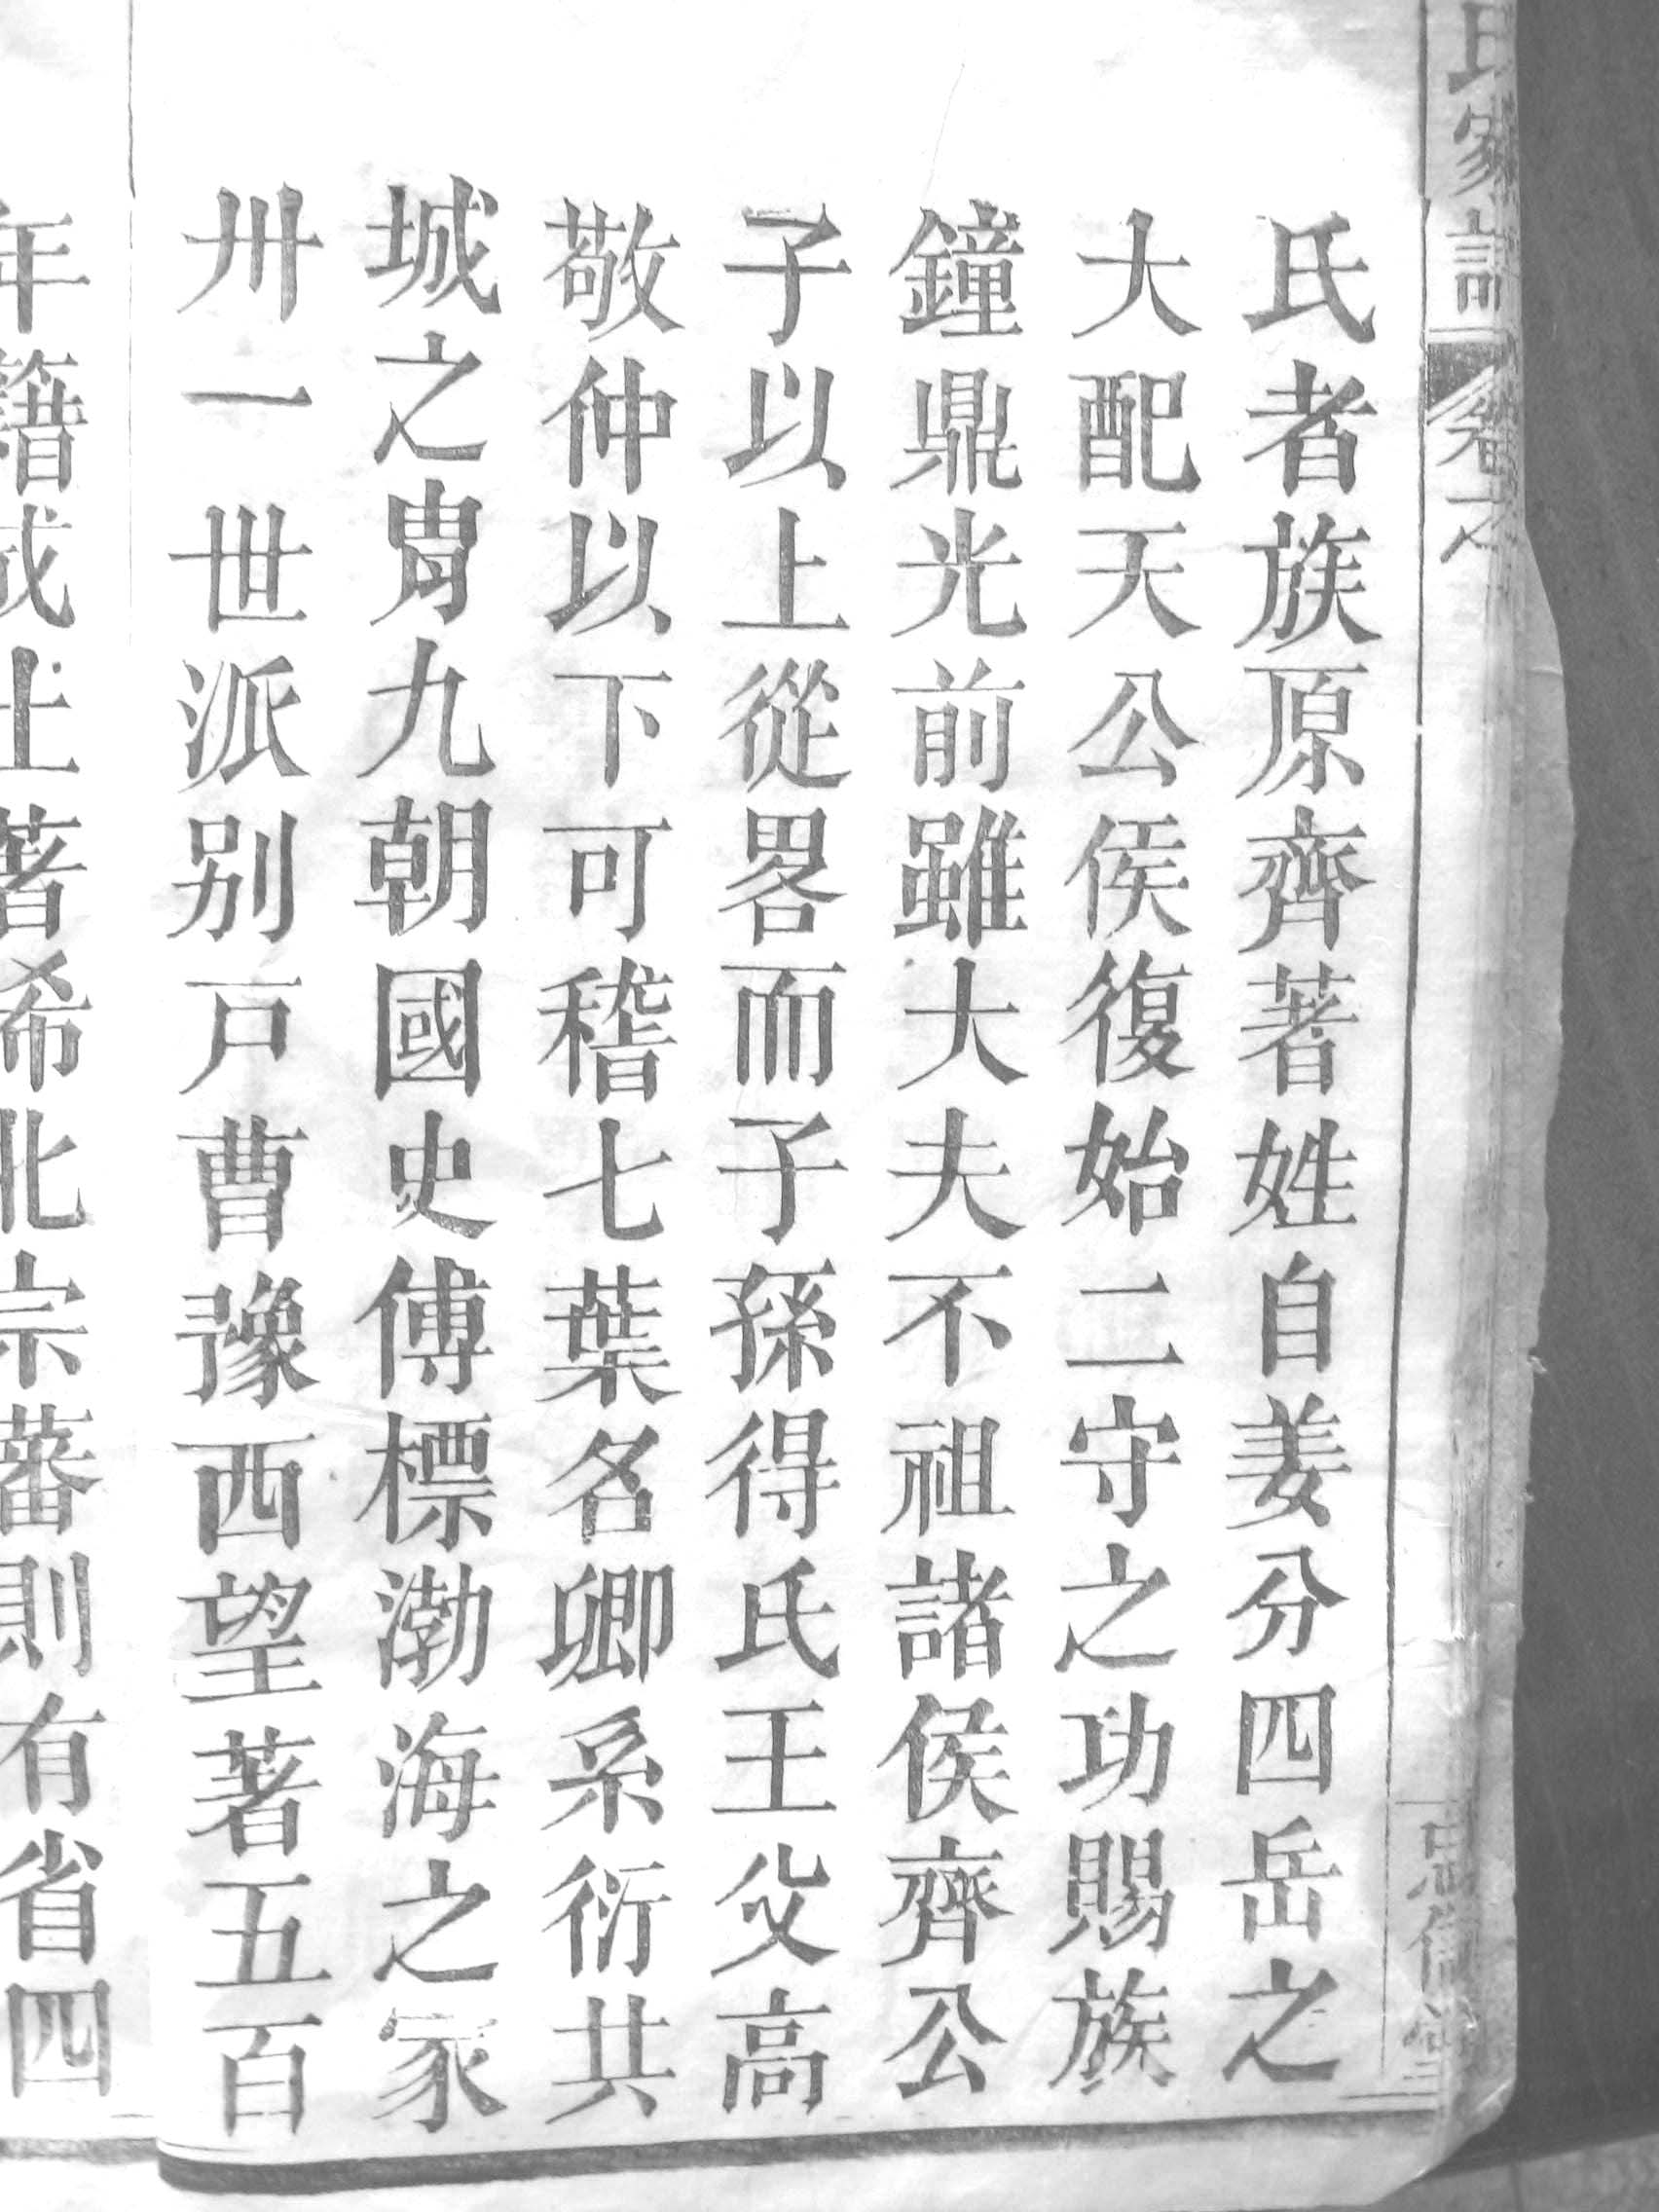 氏家譜 卷之
氏者族原齊著姓自姜分四岳之
大配天公侯復始二守之功賜族
鐘鼎光前雖大夫不祖諸侯齊公
子以上從畧而子孫得氏王父高
敬仲以下可稽七葉名卿系衍共
城之胄九朝國史傅標渤海之家
卅一世派别戸曹豫西望著五百
年籍成土著希北宗蕃則有省四